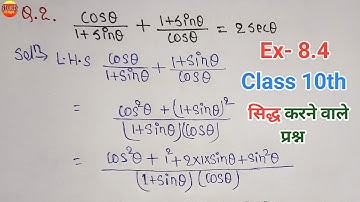 Q.2. cosθ/(1+sinθ) + (1+sinθ)/cosθ = 2secθ
Solⁿ→ L.H.S cosθ/(1+sinθ) + (1+sinθ)/cosθ
= (cos²θ + (1+sinθ)²)/((1+sinθ)(cosθ))
= (cos²θ + 1² + 2×1×sinθ + sin²θ)/((1+sinθ)(cosθ))
Ex- 8.4
Class 10th
सिद्ध करने वाले
प्रश्न